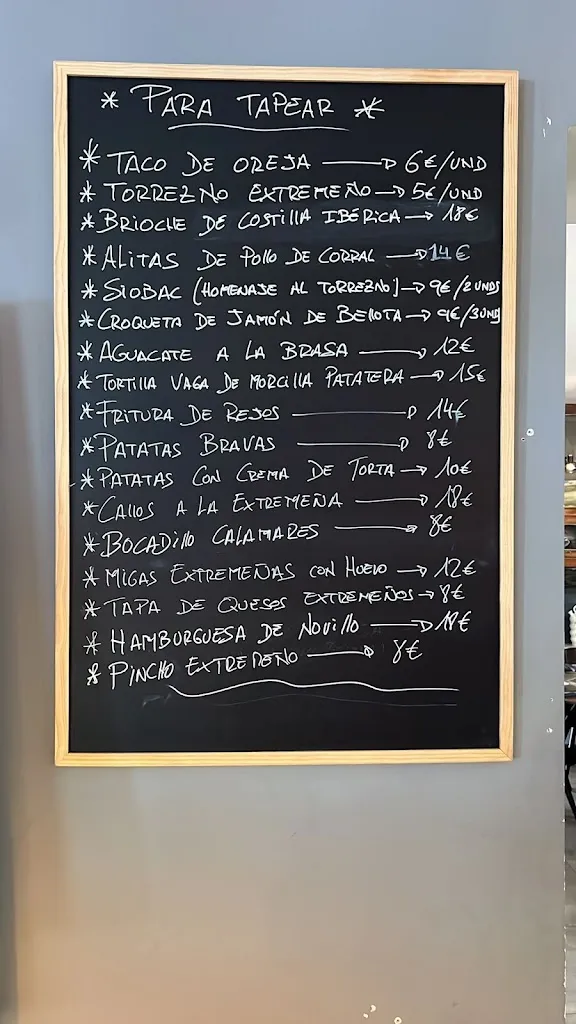 * PARA TAPEAR *
* TACO DE OREJA → 6€/UND
* TORREZNO EXTREMEÑO → 5€/UND
* BRIOCHE DE COSTILLA IBÉRICA → 18€
* ALITAS DE POLLO DE CORRAL → 14€
* SIOBAC (HOMENAJE AL TORREZNO) → 9€/2UNDS
* CROQUETA DE JAMÓN DE BELLOTA → 9€/3UNDS
* AGUACATE A LA BRASA → 12€
* TORTILLA VAGA DE MORCILLA PATATERA → 15€
* FRITURA DE REJOS → 14€
* PATATAS BRAVAS → 8€
* PATATAS CON CREMA DE TORTA → 10€
* CALLOS A LA EXTREMEÑA → 18€
* BOCADILLO CALAMARES → 8€
* MIGAS EXTREMEÑAS CON HUEVO → 12€
* TAPA DE QUESOS EXTREMEÑOS → 8€
* HAMBURGUESA DE NOVILLO → 18€
* PINCHO EXTREMEÑO → 8€